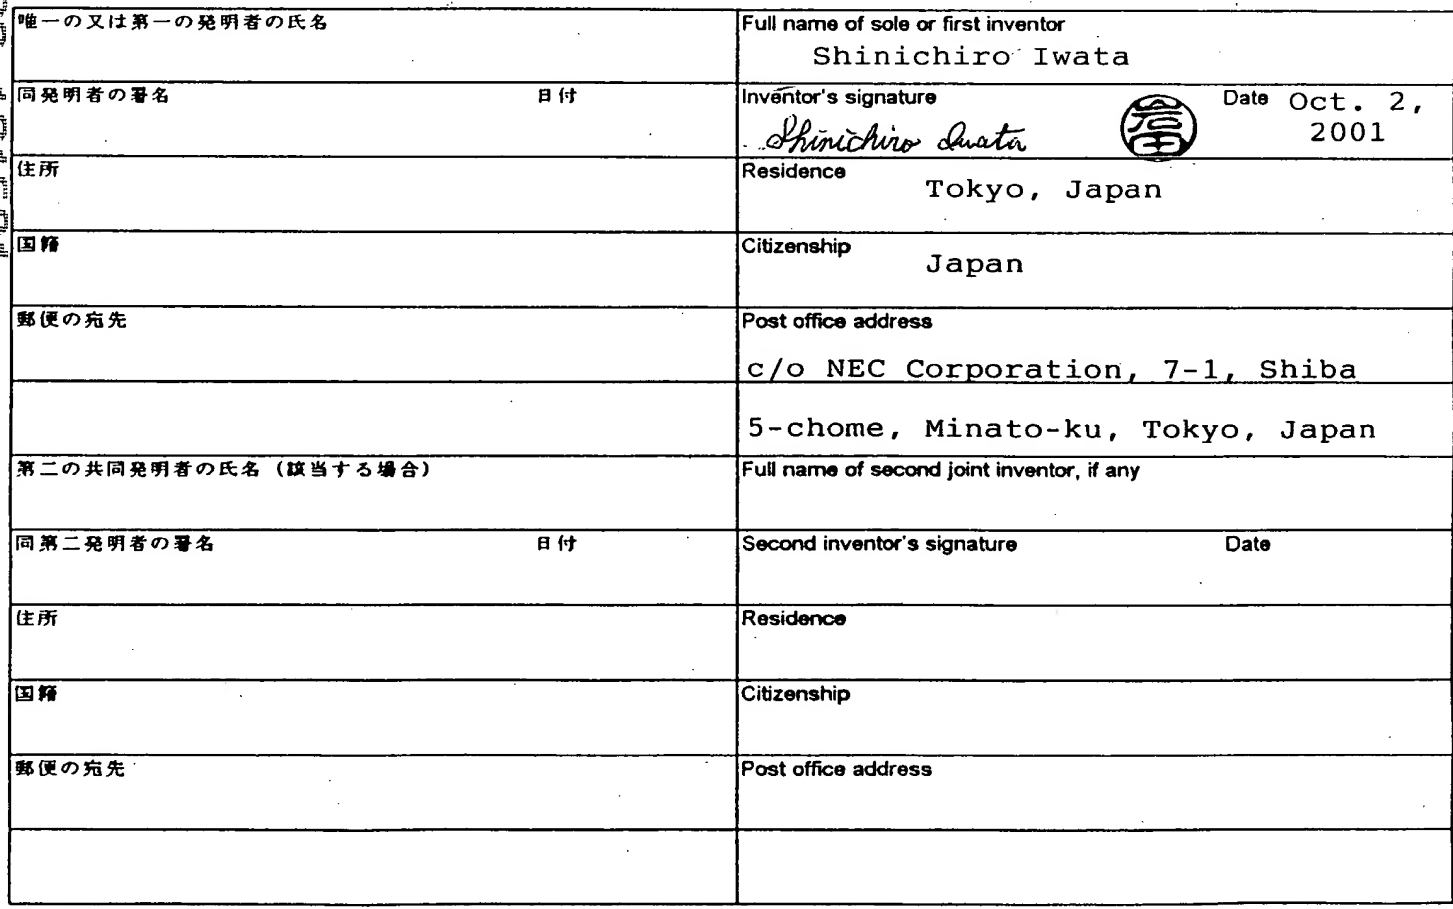 唯一の又は第一の発明者の氏名
Full name of sole or first inventor
Shinichiro Iwata
同発明者の署名 日付
Inventor's signature Date Oct. 2,
2001
Shinichiro Iwata
住所
Residence
Tokyo, Japan
国籍
Citizenship
Japan
郵便の宛先
Post office address
c/o NEC Corporation, 7-1, Shiba
5-chome, Minato-ku, Tokyo, Japan
第二の共同発明者の氏名（該当する場合）
Full name of second joint inventor, if any
同第二発明者の署名 日付
Second inventor's signature Date
住所
Residence
国籍
Citizenship
郵便の宛先
Post office address